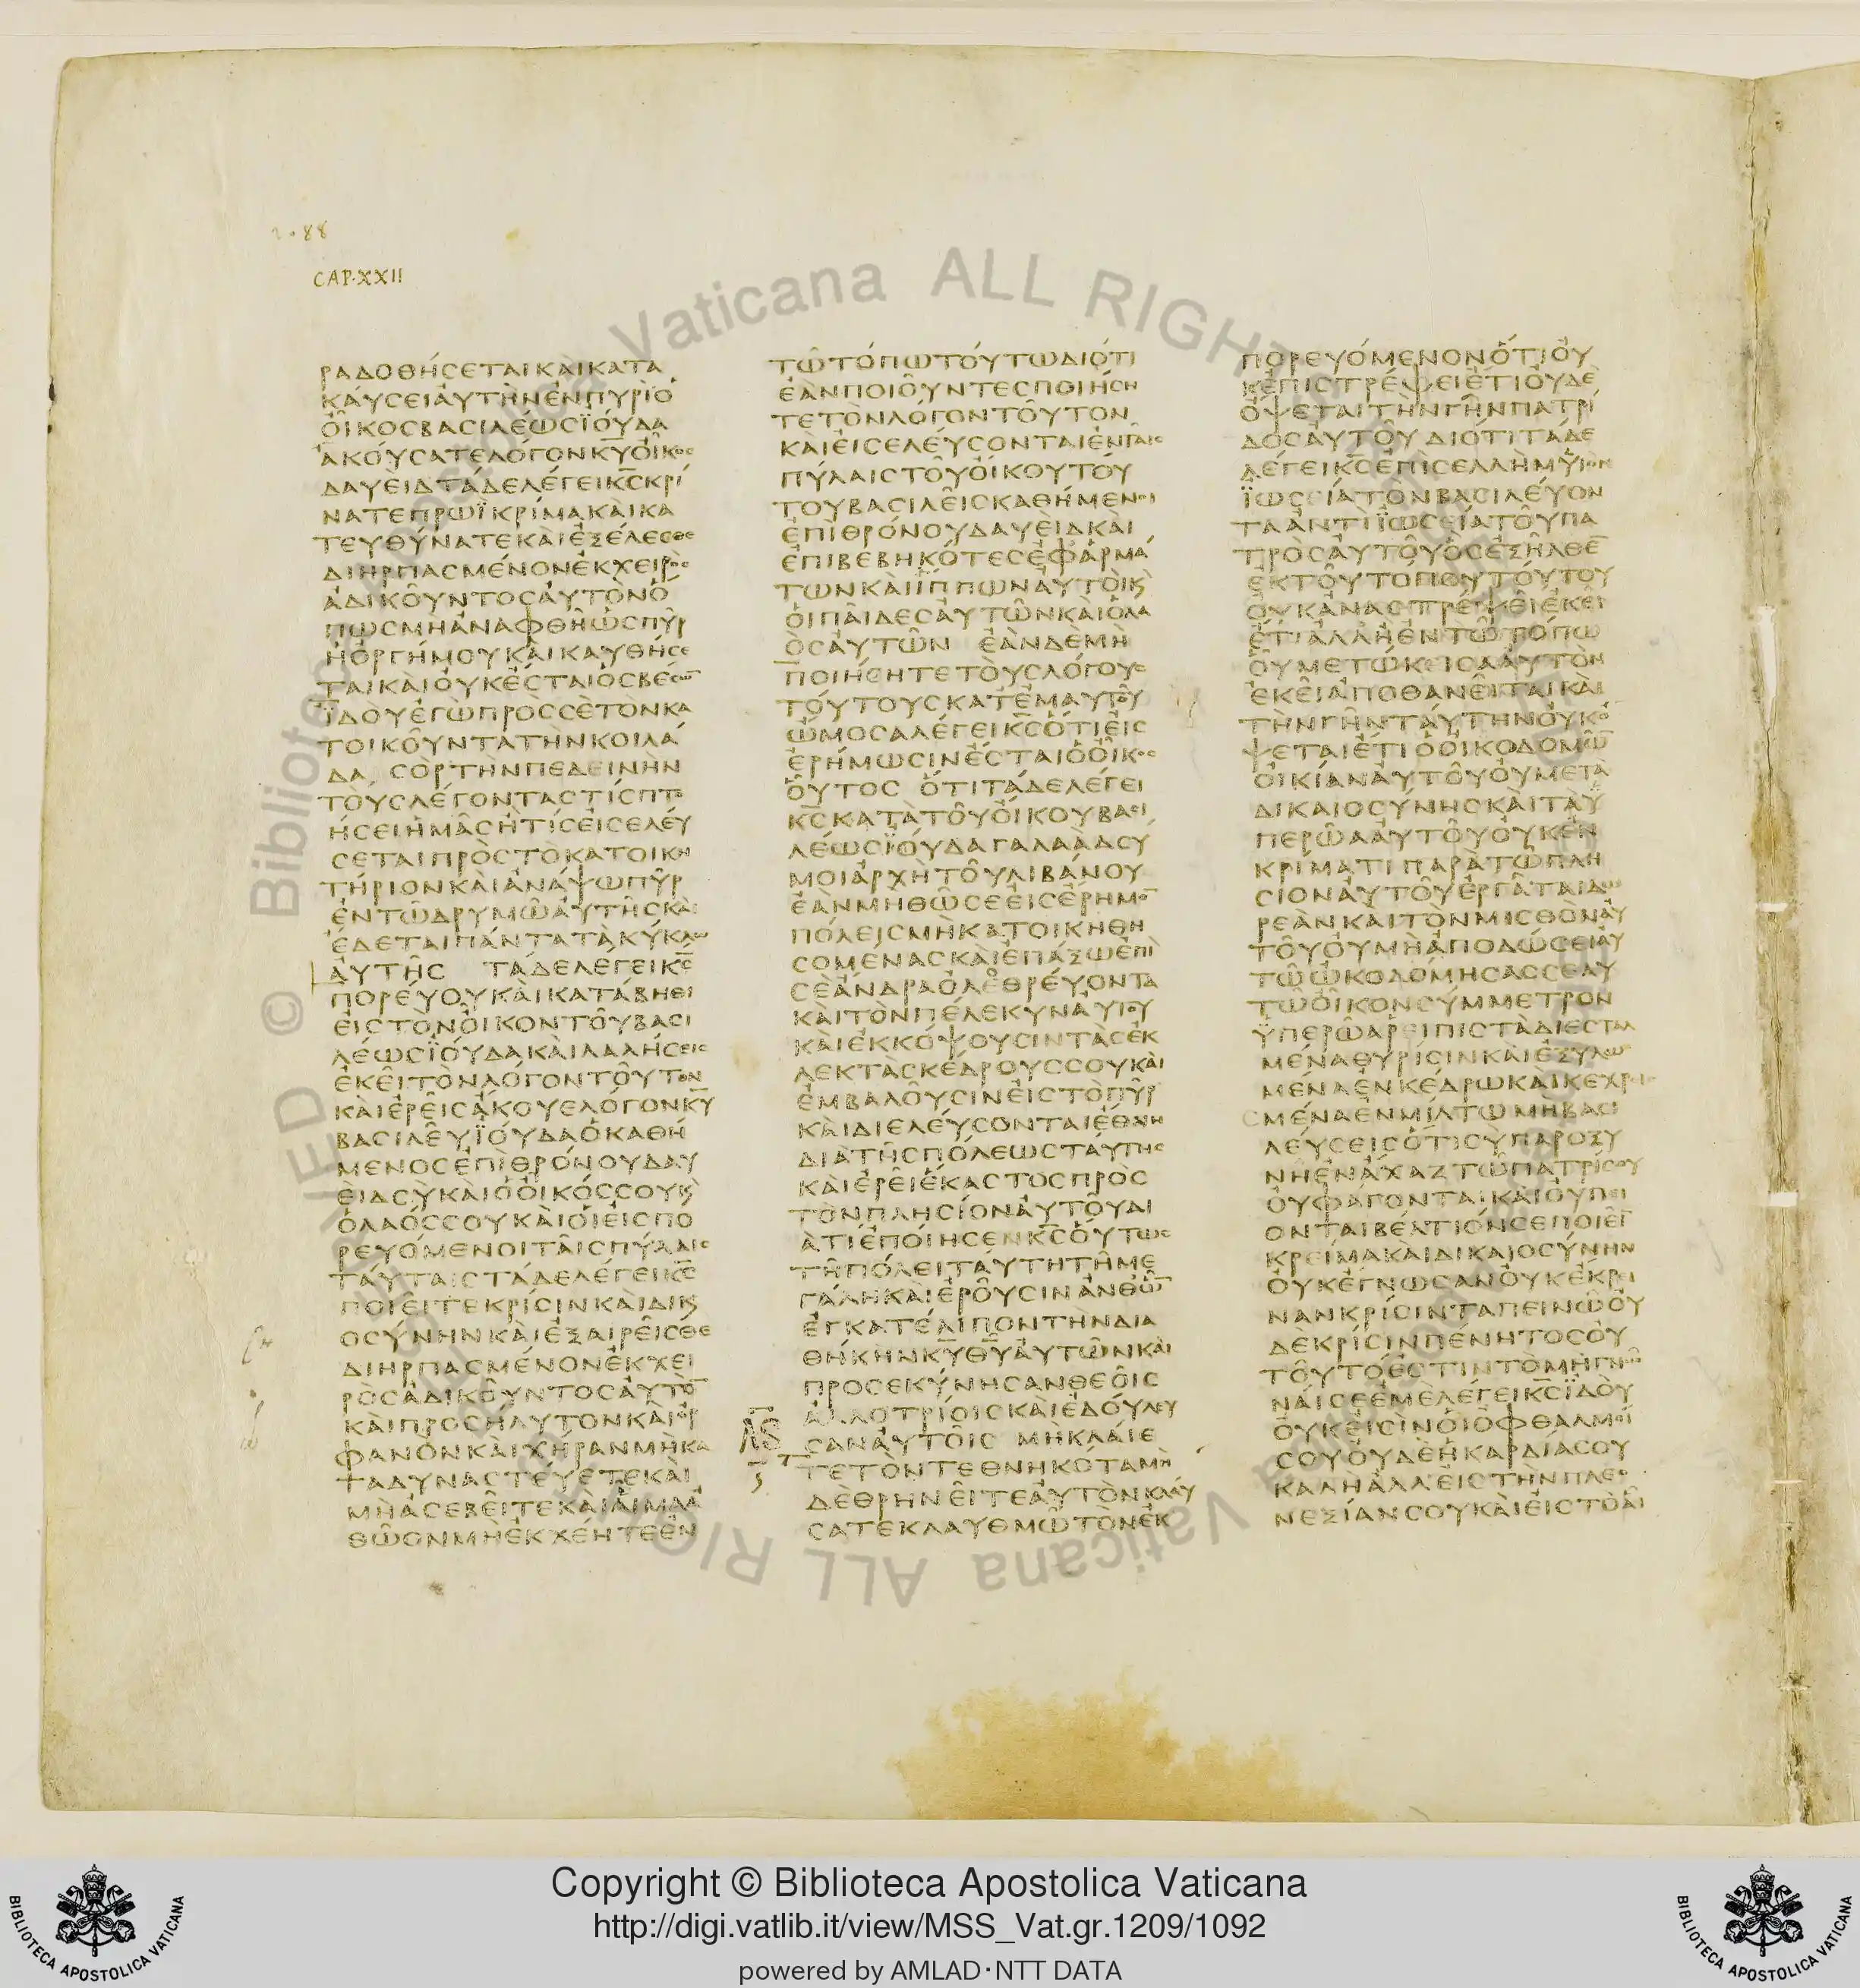 CAP·XXII
ΡΑΔΟΘΉϹΕΤΑΙΚΑῚΚΑΤΑ
ΚΑΎϹΕΙΑΥ̓ΤῊΝἘΝΠΥΡῚὉ
ΟἾΚΟϹΒΑϹΙΛΈΩϹΪΟΎΔΑ
ἈΚΟΎϹΑΤΕΛΌΓΟΝΚ̅Υ̅ΟἾΚΟϹ
ΔΑΥΕῚΔΤΆΔΕΛΈΓΕΙΚ̅Ϲ̅ΚΡΊ
ΝΑΤΕΠΡΩΪ̀ΚΡΊΜΑΚΑῚΚΑ
ΤΕΥΘΎΝΑΤΕΚΑῚἘΞΈΛΕϹΘΕ
ΔΙΗΡΠΑϹΜΈΝΟΝἘΚΧΕΙΡῸϹ
ἈΔΙΚΟΥ͂ΝΤΟϹΑΥ̓ΤῸΝὍ
ΠΩϹΜῊἈΝΑΦΘΗ͂ὩϹΠΥ͂Ρ
ἩὈΡΓΉΜΟΥΚΑῚΚΑΥΘΉϹΕ
ΤΑΙΚΑῚΟΥ̓ΚἜϹΤΑΙὉϹΒΈϹΩ̅
ΪΔΟῪἘΓῺΠΡΟϹϹῈΤῸΝΚΑ
ΤΟΙΚΟΥ͂ΝΤΑΤῊΝΚΟΙΛΆ
ΔΑ ϹῸΡΤῊΝΠΕΔΕΙΝῊΝ
ΤΟῪϹΛΈΓΟΝΤΑϹΤΊϹΠΤΟ
ΉϹΕΙἩΜΑ͂ϹἪΤΊϹΕἸϹΕΛΕΎ
ϹΕΤΑΙΠΡῸϹΤῸΚΑΤΟΙΚΗ
ΤΉΡΙΟΝΚΑῚἈΝΆΨΩΠΥ͂Ρ
ἘΝΤΩ͂ΔΡΥΜΩ͂ΑΥ̓ΤΗ͂ϹΚΑῚ
ἜΔΕΤΑΙΠΆΝΤΑΤᾺΚΎΚΛΩ
ΑΥ̓ΤΗ͂Ϲ ΤΆΔΕΛΈΓΕΙΚ̅Ϲ̅
ΠΟΡΕΎΟΥΚΑῚΚΑΤΆΒΗΘΙ
ΕἸϹΤῸΝΟἾΚΟΝΤΟΥ͂ΒΑϹΙ
ΛΈΩϹΪΟΎΔΑΚΑῚΛΑΛΉϹΕΙϹ
ἘΚΕΙ͂ΤῸΝΛΌΓΟΝΤΟΥ͂ΤΟΝ
ΚΑῚἘΡΕΙ͂ϹἌΚΟΥΕΛΌΓΟΝΚ̅Υ̅
ΒΑϹΙΛΕΥ͂ΪΟΎΔΑὉΚΑΘΉ
ΜΕΝΟϹἘΠῚΘΡΌΝΟΥΔΑΥ
ΕῚΔϹῪΚΑῚὉΟἾΚΌϹϹΟΥΚῚ
ὉΛΑΌϹϹΟΥΚΑῚΟἹΕἸϹΠΟ
ΡΕΥΌΜΕΝΟΙΤΑΙ͂ϹΠΎΛΑΙϹ
ΤΑΎΤΑΙϹΤΆΔΕΛΈΓΕΙΚ̅Ϲ̅
ΠΟΙΕΙ͂ΤΕΚΡΊϹΙΝΚΑῚΔΙΚΙ
ΟϹΎΝΗΝΚΑῚἘΞΑΙΡΕΙ͂ϹΘΕ
ΔΙΗΡΠΑϹΜΈΝΟΝἘΚΧΕΙ
ΡῸϹἈΔΙΚΟΥ͂ΝΤΟϹΑΥ̓ΤῸ̅
ΚΑῚΠΡΟϹΉΛΥΤΟΝΚΑῚὈΡ
ΦΑΝῸΝΚΑῚΧΉΡΑΝΜῊΚΑ
ΤΑΔΥΝΑϹΤΕΎΕΤΕΚΑῚ
ΜῊἈϹΕΒΕΙ͂ΤΕΚΑῚΑἿΜΑἈ
ΘΩ͂ΟΝΜῊἘΚΧΈΗΤΕἘΝ
ΤΩ͂ΤΌΠΩΤΟΎΤΩΔΙΌΤΙ
ἘᾺΝΠΟΙΟΥ͂ΝΤΕϹΠΟΙΉϹΗ
ΤΕΤῸΝΛΌΓΟΝΤΟΥ͂ΤΟΝ
ΚΑῚΕἸϹΕΛΕΎϹΟΝΤΑΙἘΝΤΑΙ͂Ϲ
ΠΎΛΑΙϹΤΟΥ͂ΟἸΚΟΥΤΟΎ
ΤΟΥΒΑϹΙΛΕΙ͂ϹΚΑΘΉΜΕΝΟΙ
ἘΠῚΘΡΌΝΟΥΔΑΥΕῚΔΚΑῚ
ἘΠΙΒΕΒΗΚΌΤΕϹἘΦἉΡΜΆ
ΤΩΝΚΑῚΪΠΠΩΝΑΥ̓ΤΟῚΚῚ
ΟἹΠΑΙ͂ΔΕϹΑΥ̓ΤΩ͂ΝΚΑῚὉΛΑ
ῸϹΑΥ̓ΤΩ͂Ν ἘᾺΝΔΕΜῊ
ΠΟΙΉϹΗΤΕΤΟῪϹΛΌΓΟΥϹ
ΤΟΎΤΟΥϹΚΑΤἘΜΑΥΤΟΥ͂
ὬΜΟϹΑΛΈΓΕΙΚ̅Ϲ̅ὍΤΙΕἸϹ
ἘΡΉΜΩϹΙΝἜϹΤΑΙὉΟἾΚΟϹ
ΟὟΤΟϹ ὍΤΙΤΆΔΕΛΈΓΕΙ
Κ̅Ϲ̅ΚΑΤᾺΤΟΥ͂ΟἼΚΟΥΒΑϹΙ
ΛΈΩϹΪΟΎΔΑΓΑΛΑᾺΔϹΎ
ΜΟΙἈΡΧῊΤΟΥ͂ΛΙΒΆΝΟΥ
ἘᾺΝΜῊΘΩ͂ϹΕΕἸϹἜΡΗΜΟ̅
ΠΌΛΕΙϹΜῊΚΑΤΟΙΚΗΘΗ
ϹΟΜΈΝΑϹΚΑῚἘΠΆΞΩἘΠῚ
ϹῈἌΝΔΡΑὈΛΕΘΡΕΎΟΝΤΑ
ΚΑῚΤῸΝΠΈΛΕΚΥΝΑΥ̓ΤΟΥ͂
ΚΑῚἘΚΚΌΨΟΥϹΙΝΤᾺϹἘΚ
ΛΕΚΤᾺϹΚΈΔΡΟΥϹϹΟΥΚΑῚ
ἘΜΒΑΛΟΥ͂ϹΙΝΕἸϹΤῸΠΥ͂Ρ
ΚΑῚΔΙΕΛΕΎϹΟΝΤΑΙἜΘΝΗ
ΔΙᾺΤΗ͂ϹΠΌΛΕΩϹΤΑΎΤΗϹ
ΚΑῚἘΡΕΙ͂ἝΚΑϹΤΟϹΠΡῸϹ
ΤῸΝΠΛΗϹΊΟΝΑΥ̓ΤΟΥ͂ΔΙ
ᾺΤΊἘΠΟΊΗϹΕΝΚ̅Ϲ̅ΟὝΤΩϹ
ΤΗ͂ΠΌΛΕΙΤΑΎΤΗΤΗ͂ΜΕ
ΓΆΛΗΚΑῚἘΡΟΥ͂ϹΙΝἈΝΘΩ͂̅
ἘΓΚΑΤΈΛΙΠΟΝΤῊΝΔΙΑ
ΘΉΚΗΝΚ̅Υ̅Θ̅Υ̅ΑΥ̓ΤΩ͂ΝΚΑῚ
ΠΡΟϹΕΚΎΝΗϹΑΝΘΕΟΙ͂Ϲ
ἈΛΛΟΤΡΊΟΙϹΚΑῚἘΔΟΎΛΕΥ
ϹΑΝΑΥ̓ΤΟΙ͂Ϲ ΜῊΚΛΑΊΕ
ΤΕΤῸΝΤΕΘΝΗΚΌΤΑΜΗ
ΔῈΘΡΗΝΕΙ͂ΤΕΑΥ̓ΤῸΝΚΛΑΎ
ϹΑΤΕΚΛΑΥΘΜΩ͂ΤῸΝἘΚ
ΠΟΡΕΥΌΜΕΝΟΝὍΤΙΟΥ̓
ΚἘΠΙϹΤΡΈΨΕΙἜΤΙΟΥ̓ΔῈ
ὌΨΕΤΑΙΤῊΝΓΗ͂ΝΠΑΤΡΊ
ΔΟϹΑΥ̓ΤΟΥ͂ΔΙΌΤΙΤΆΔΕ
ΛΈΓΕΙΚ̅Ϲ̅ἘΠῚϹΕΛΛῊΜΥἹῸΝ
ΪΩϹΕΊΑΤῸΝΒΑϹΙΛΕΎΟΝ
ΤΑἈΝΤῚΪΩϹΕΊΑΤΟΥ͂ΠΑ
ΤΡῸϹΑΥ̓ΤΟΥ͂ὋϹἘΞΗ͂ΛΘΕ̅
ἘΚΤΟΥ͂ΤΌΠΟΥΤΟΎΤΟΥ
ΟΥ̓ΚἈΝΑϹΤΡΈΨΕΙἘΚΕΙ͂
ἜΤΙἈΛΛῊἘΝΤΩ͂ΤΌΠΩ
ΟΥ͂ΜΕΤΏΚΕΙϹΑΑΥ̓ΤῸΝ
ἘΚΕΙ͂ἈΠΟΘΑΝΕΙ͂ΤΑΙΚΑῚ
ΤῊΝΓΗ͂ΝΤΑΎΤΗΝΟΥ̓ΚὌ
ΨΕΤΑΙἜΤΙὉΟἸΚΟΔΟΜΩ͂̅
ΟἸΚΊΑΝΑΥ̓ΤΟΥ͂ΟΥ̓ΜΕΤᾺ
ΔΙΚΑΙΟϹΎΝΗϹΚΑῚΤᾺΫ
ΠΕΡΩ͂ΑΑΥ̓ΤΟΥ͂ΟΥ̓ΚἘΝ
ΚΡΊΜΑΤΙΠΑΡᾺΤΩ͂ΠΛΗ
ϹΊΟΝΑΥ̓ΤΟΥ͂ἘΡΓΑ͂ΤΑΙΔΩ
ΡΕᾺΝΚΑῚΤῸΝΜΙϹΘῸΝΑΥ̓
ΤΟΥ͂ΟΥ̓ΜῊἈΠΟΔΏϹΕΙΑΥ̓
ΤΩ͂ὨΚΟΔΌΜΗϹΑϹϹΕΑΥ
ΤΩ͂ΟἾΚΟΝϹΎΜΜΕΤΡΟΝ
ΫΠΕΡΩ͂ΑῬΕΙΠΙϹΤᾺΔΙΕϹΤΑΛ
ΜΈΝΑΘΥΡΊϹΙΝΚΑῚἘΞΥΛΩ
ΜΈΝΑἘΝΚΈΔΡΩΚΑῚΚΕΧΡΙ
ϹΜΈΝΑἘΝΜΊΛΤΩΜῊΒΑϹΙ
ΛΕΎϹΕΙϹὍΤΙϹῪΠΑΡΟΞΎ
ΝΗἘΝἌΧΑΖΤΩ͂ΠΑΤΡΊϹΟΥ
ΟΥ̓ΦΆΓΟΝΤΑΙΚΑῚΟΥ̓ΠΊ
ΟΝΤΑΙΒΈΛΤΙΟΝϹΕΠΟΙΕΙ͂̅
ΚΡΕΊΜΑΚΑῚΔΙΚΑΙΟϹΎΝΗΝ
ΟΥ̓ΚἜΓΝΩϹΑΝΟΥ̓ΚἜΚΡΙ
ΝΑΝΚΡΊϹΙΝΤΑΠΕΙΝΩ͂ΟΥ̓
ΔΕΚΡΊϹΙΝΠΈΝΗΤΟϹΟΥ̓
ΤΟΥ͂ΤΌἘϹΤΙΝΤῸΜῊΓΝΩ͂
ΝΑΊϹΕἘΜῈΛΈΓΕΙΚ̅Ϲ̅ΪΔΟῪ
ΟΥ̓ΚΕἸϹῚΝΟἹὈΦΘΑΛΜΟΊ
ϹΟΥΟΥ̓ΔῈἩΚΑΡΔΊΑϹΟΥ
ΚΑΛῊἈΛΛΕἸϹΤῊΝΠΛΕΟ
ΝΕΞΊΑΝϹΟΥΚΑῚΕἸϹΤῸΑἿ
Copyright © Biblioteca Apostolica Vaticana
http://digi.vatlib.it/view/MSS_Vat.gr.1209/1092
powered by AMLAD·NTT DATA
BIBLIOTECA APOSTOLICA VATICANA
BIBLIOTECA APOSTOLICA VATICANA